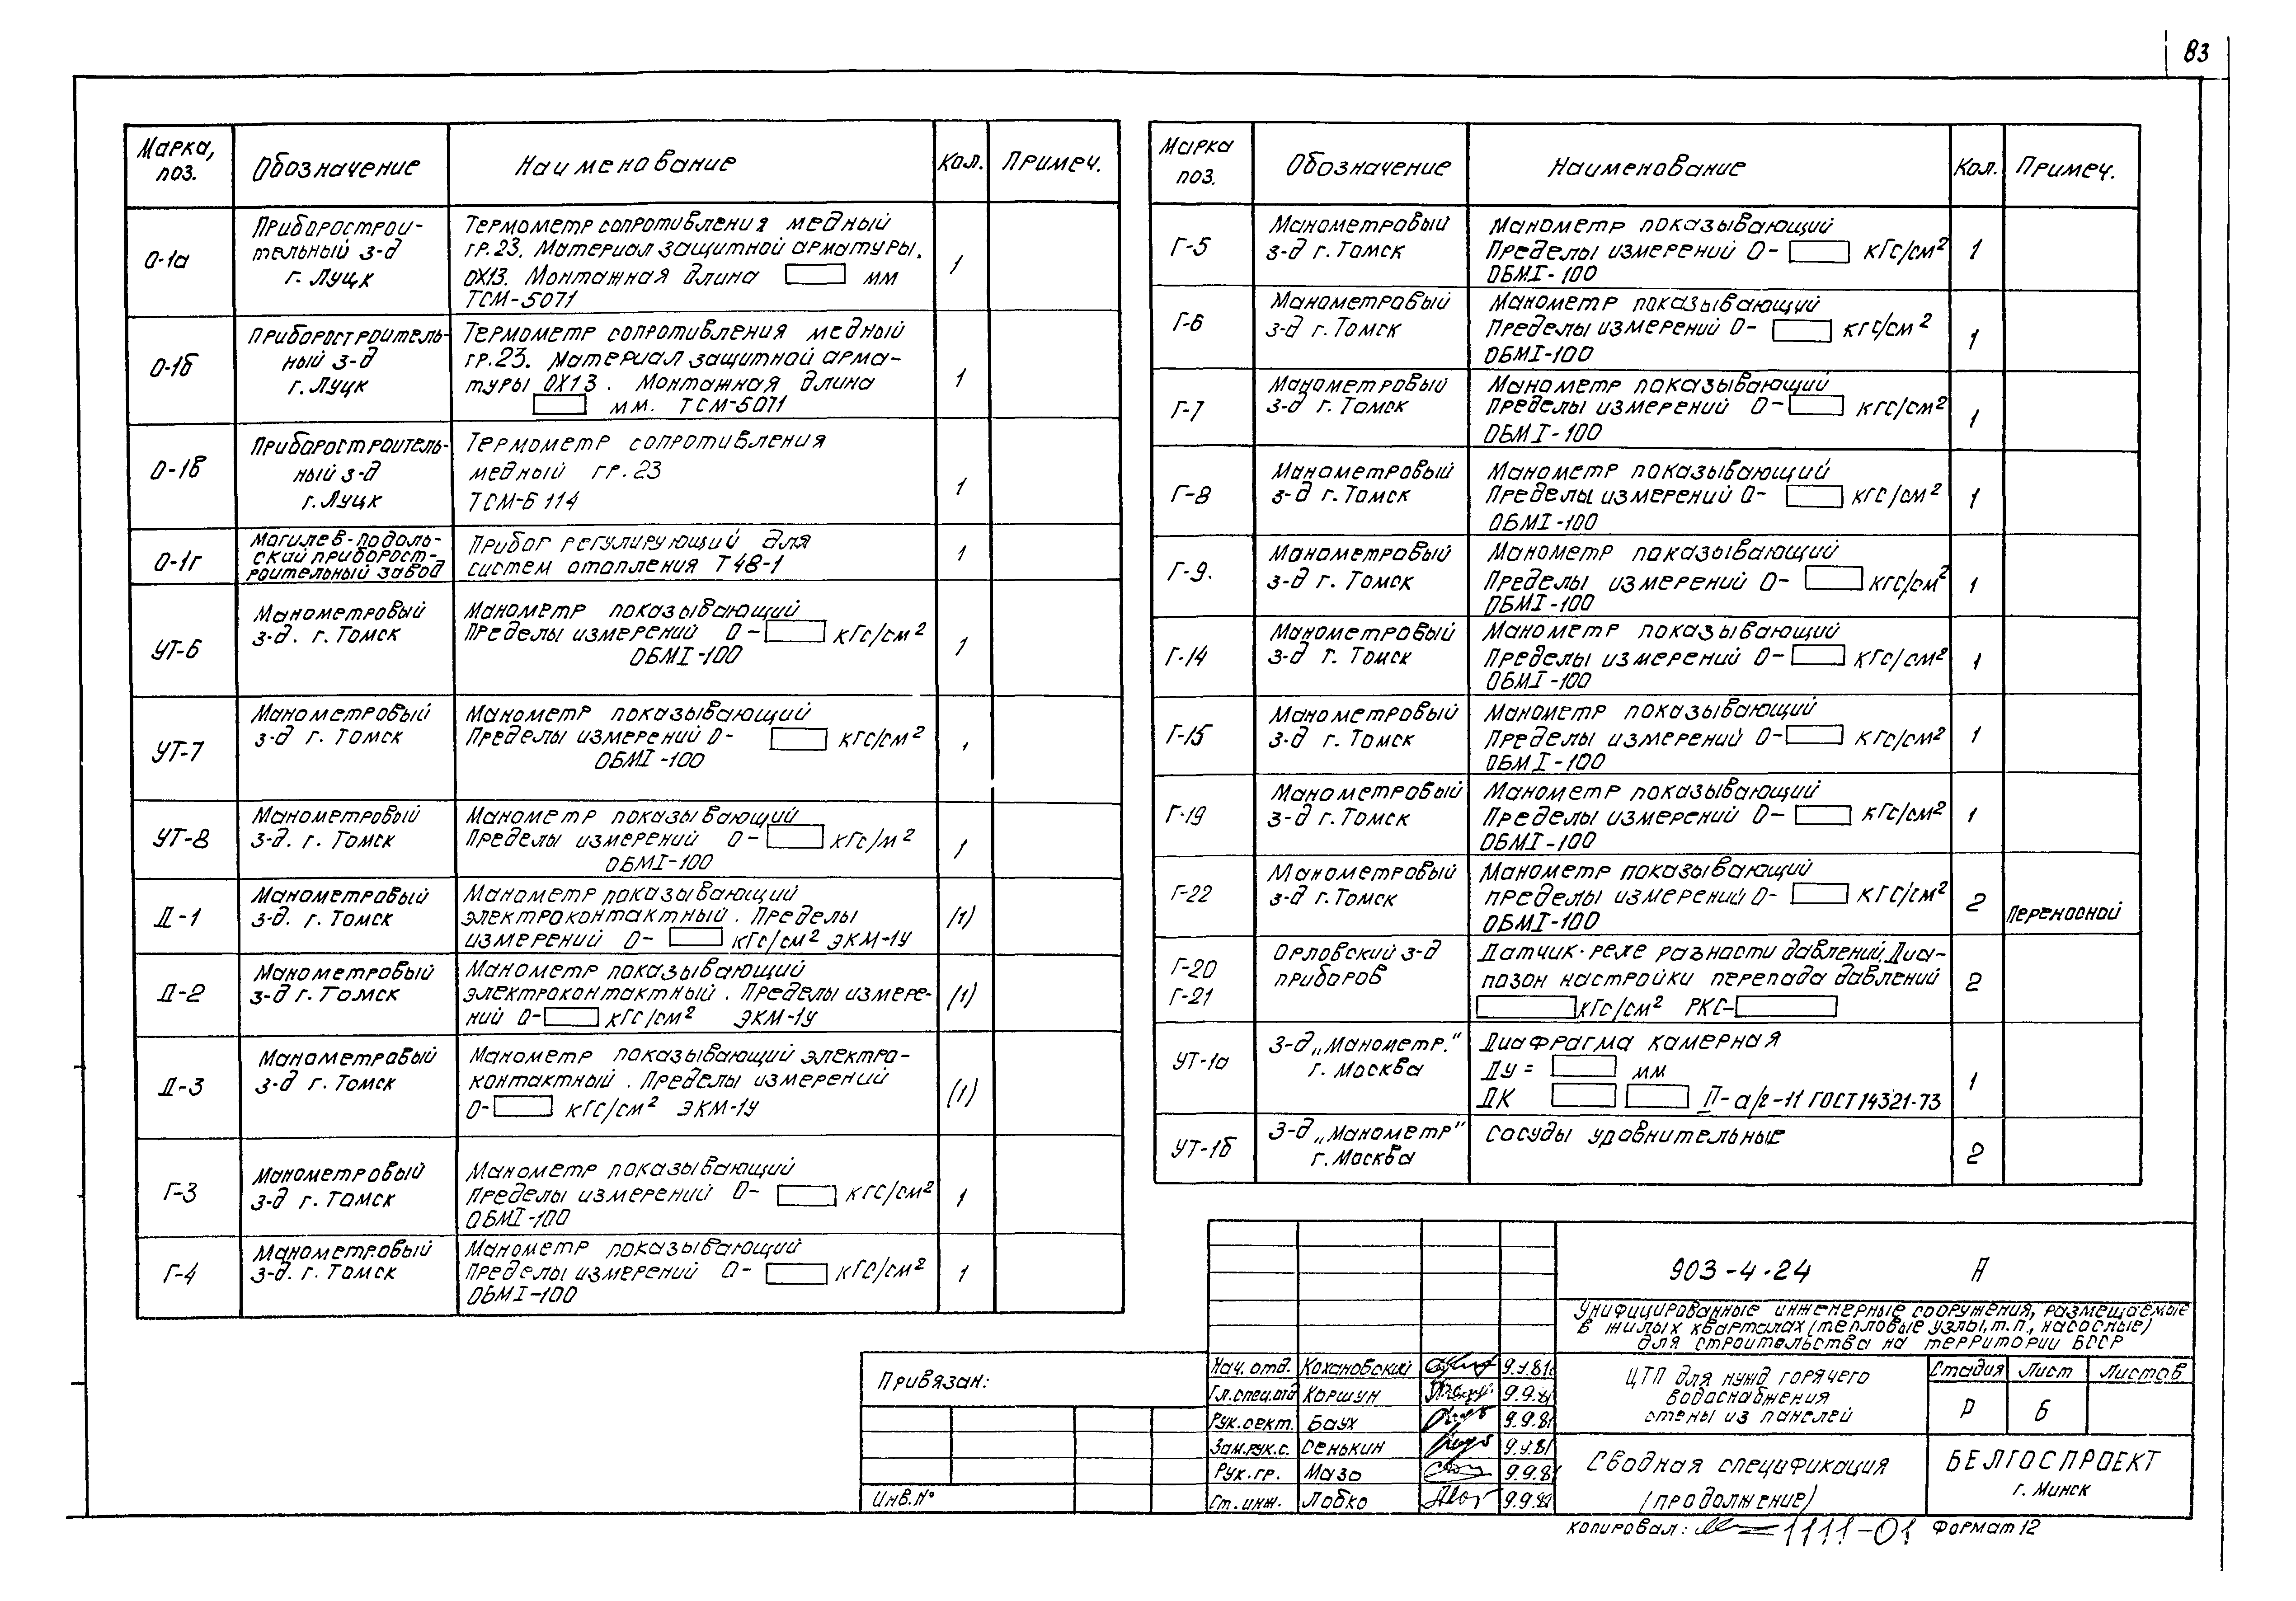 83
Марка, поз. Обозначение Наименование Кол. Примеч.
О-1а
Приборострои-
тельный з-д
г. Луцк
Термометр сопротивления медный
гр.23. Материал защитной арматуры.
ОХ13. Монтажная длина мм
ТСМ-5071
1
О-1б
Приборостроитель-
ный з-д
г. Луцк
Термометр сопротивления медный
гр.23. Материал защитной арма-
туры ОХ13. Монтажная длина
мм. ТСМ-5071
1
О-1в
Приборостроитель-
ный з-д
г. Луцк
Термометр сопротивления
медный гр.23
ТСМ-6114
1
О-1г
Могилев-подоль-
ский приборост-
роительный завод
Прибор регулирующий для
систем отопления Т48-1
1
УТ-6
Манометровый
з-д. г. Томск
Манометр показывающий
Пределы измерений 0- кгс/см²
ОБМ1-100
1
УТ-7
Манометровый
з-д г. Томск
Манометр показывающий
Пределы измерений 0- кгс/см²
ОБМ1-100
1
УТ-8
Манометровый
з-д. г. Томск
Манометр показывающий
Пределы измерений 0- кгс/м²
ОБМ1-100
1
Д-1
Манометровый
з-д. г. Томск
Манометр показывающий
электроконтактный. Пределы
измерений 0- кгс/см² ЭКМ-1У
(1)
Д-2
Манометровый
з-д г. Томск
Манометр показывающий
электроконтактный. Пределы измере-
ний 0- кгс/см² ЭКМ-1У
(1)
Д-3
Манометровый
з-д г. Томск
Манометр показывающий электро-
контактный. Пределы измерений
0- кгс/см² ЭКМ-1У
(1)
Г-3
Манометровый
з-д г. Томск
Манометр показывающий
Пределы измерений 0- кгс/см²
ОБМ1-100
1
Г-4
Манометровый
з-д. г. Томск
Манометр показывающий
Пределы измерений 0- кгс/см²
ОБМ1-100
1
Марка поз. Обозначение Наименование Кол. Примеч.
Г-5
Манометровый
з-д г. Томск
Манометр показывающий
Пределы измерений 0- кгс/см²
ОБМ1-100
1
Г-6
Манометровый
з-д г. Томск
Манометр показывающий
Пределы измерений 0- кгс/см²
ОБМ1-100
1
Г-7
Манометровый
з-д г. Томск
Манометр показывающий
Пределы измерений 0- кгс/см²
ОБМ1-100
1
Г-8
Манометровый
з-д г. Томск
Манометр показывающий
Пределы измерений 0- кгс/см²
ОБМ1-100
1
Г-9.
Манометровый
з-д г. Томск
Манометр показывающий
Пределы измерений 0- кгс/см²
ОБМ1-100
1
Г-14
Манометровый
з-д г. Томск
Манометр показывающий
Пределы измерений 0- кгс/см²
ОБМ1-100
1
Г-15
Манометровый
з-д г. Томск
Манометр показывающий
Пределы измерений 0- кгс/см²
ОБМ1-100
1
Г-19
Манометровый
з-д г. Томск
Манометр показывающий
Пределы измерений 0- кгс/см²
ОБМ1-100
1
Г-22
Манометровый
з-д г. Томск
Манометр показывающий
пределы измерений 0- кгс/см²
ОБМ1-100
2
Переносной
Г-20
Г-21
Орловский з-д
приборов
Датчик-реле разности давлений. Диа-
пазон настройки перепада давлений
кгс/см² РКС-
2
УТ-1а
З-д „Манометр."
г. Москва
Диафрагма камерная
Ду = мм
ДК II-а/г-11 ГОСТ 14321-73
1
УТ-1б
З-д „Манометр"
г. Москва
Сосуды уравнительные
2
903-4-24 А
Унифицированные инженерные сооружения, размещаемые
в жилых кварталах (тепловые узлы, т.п., насосные)
для строительства на территории БССР
Привязан:
Инв.№
Нач. отд. Кохановский 9.9.81
Гл.спец.отд Коршун 9.9.81
Рук.сект. Баух 9.9.81
Зам.рук.с. Сенькин 9.9.81
Рук.гр. Мазо 9.9.81
Ст. инж. Лобко 9.9.81
ЦТП для нужд горячего
водоснабжения
стены из панелей
Стадия Лист Листов
Р 6
Сводная спецификация
(продолжение)
БЕЛГОСПРОЕКТ
г. Минск
Копировал: 1111-01 Формат 12